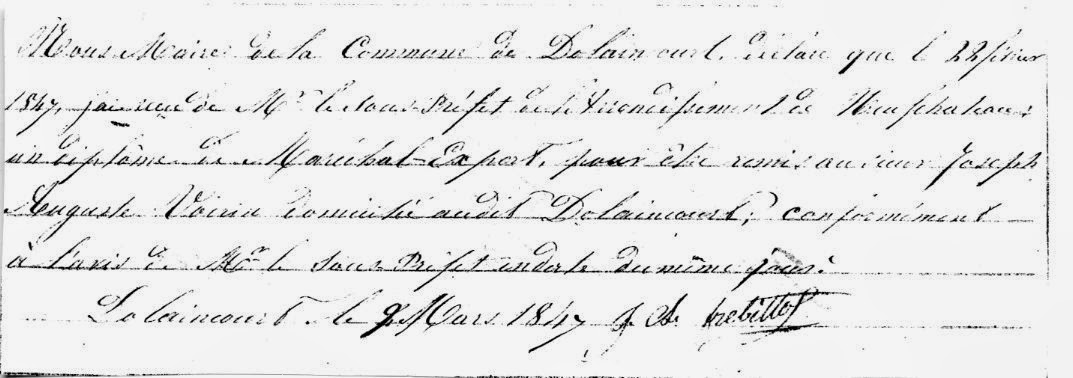 Nous Maire de la Commune de Dolaincourt, déclare que le 22 février
1847, j'ai reçu de Mr. le Sous-Préfet de l'Arrondissement de Neufchateau
un diplôme de Maréchal-Expert, pour être remis au sieur Joseph
Auguste Voirin domicilié audit Dolaincourt, conformément
à l'avis de Mr. le Sous-Préfet en date du même jour.
Dolaincourt, le 9 Mars 1847